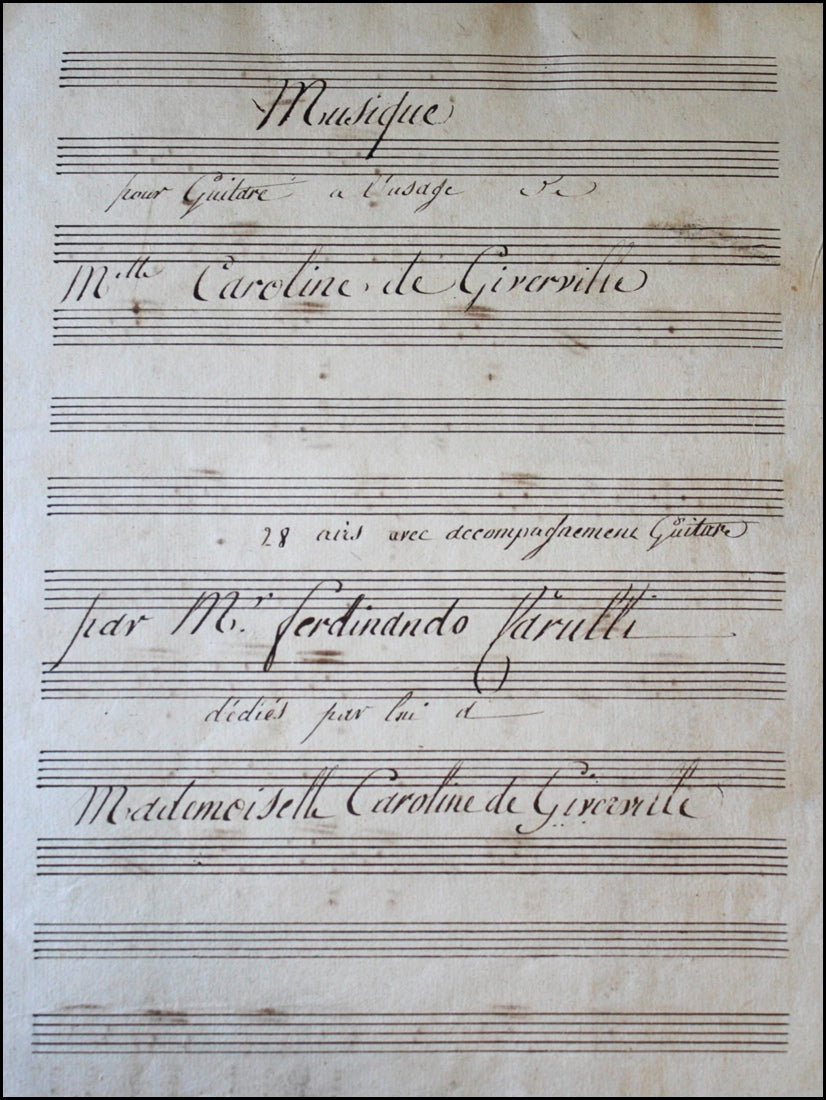 Musique
pour Guitare a l'usage De
Mlle Caroline de Giverville
28 airs avec accompagnement Guitare
par Mr. Ferdinando Carulli
dédiés par lui à
Mademoiselle Caroline de Giverville